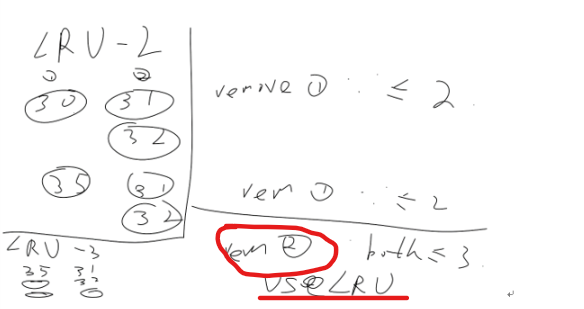 LRU-2
① ②
30 31
32
35 31
32
remove ① ∵ ≤ 2
rem ① ∵ ≤ 2
LRU-3
35 31
32
rem ② ∵ both ≤ 3
use LRU